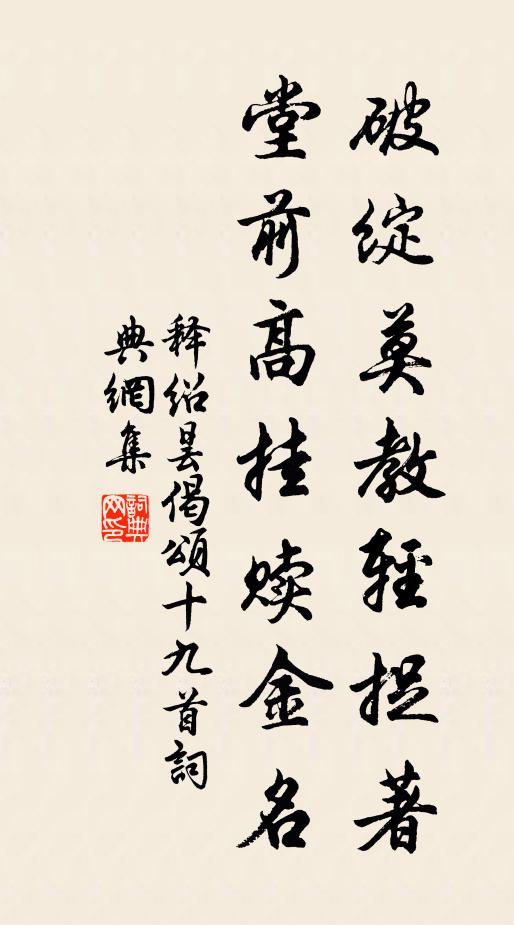 破綻莫教輕捉著
堂前高挂赎金名
释绍昙偈頌十九首詞
典網集
詞典網印